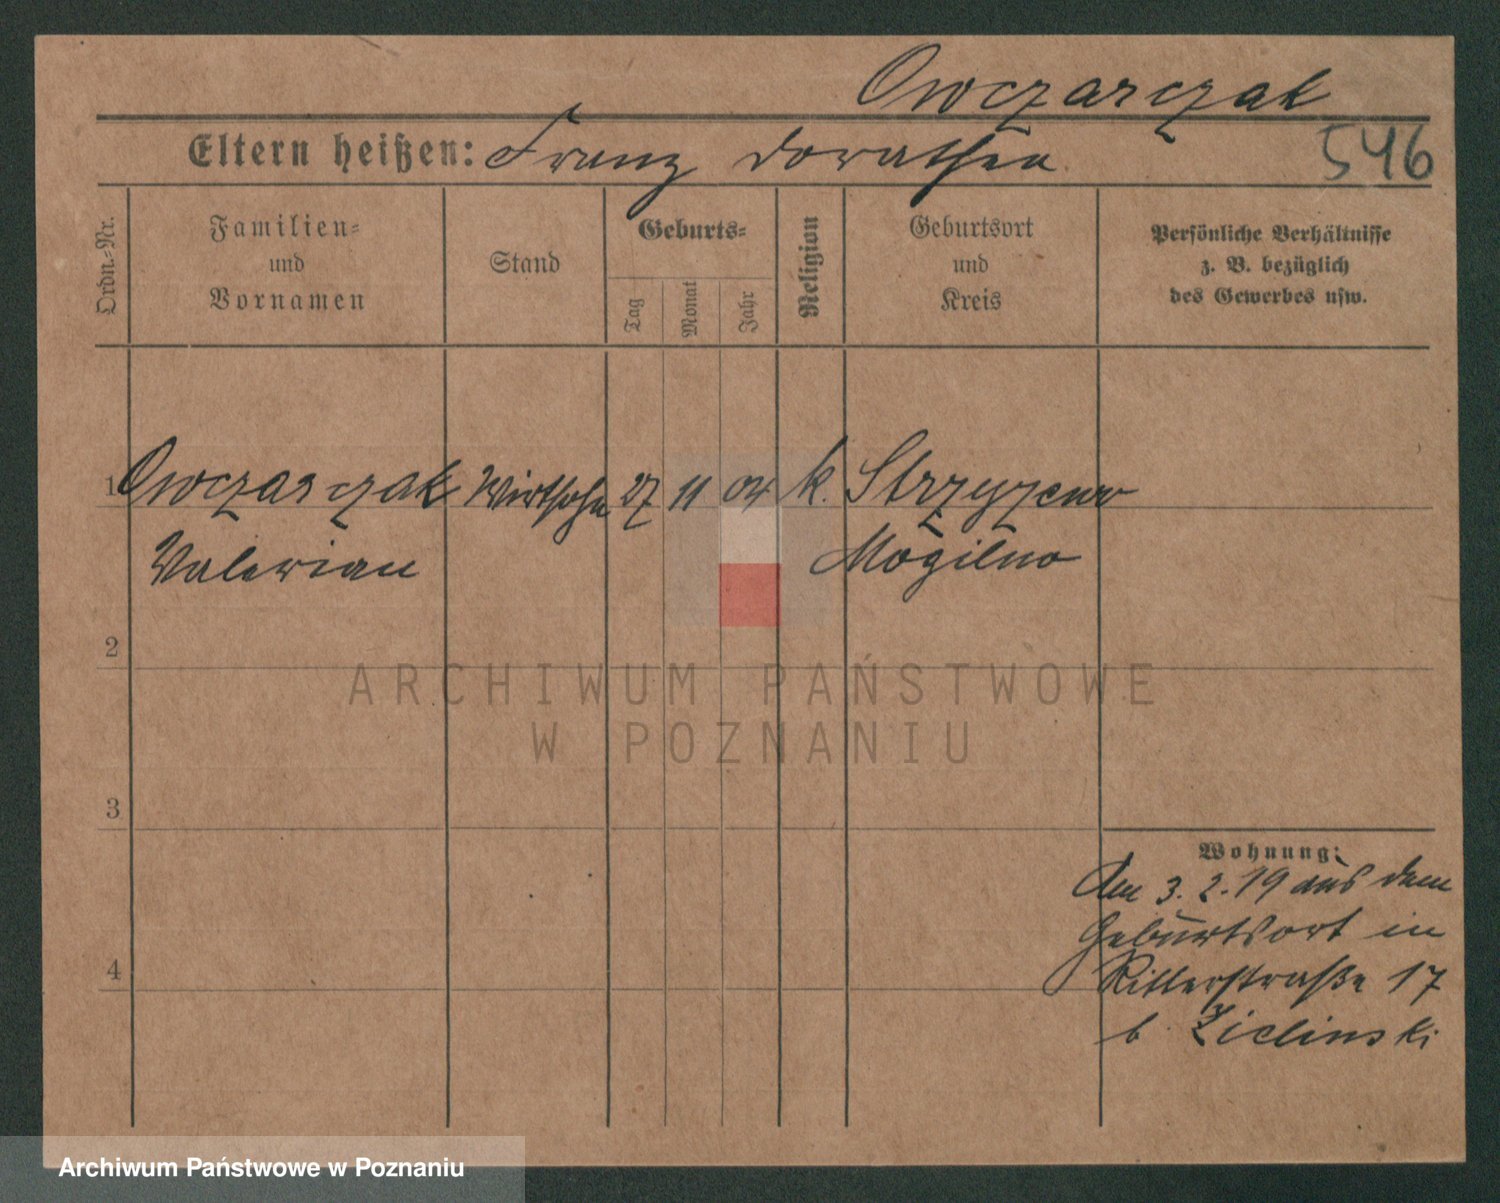 Owczarczak
Eltern heißen: Franz Dorathea
546
Ordn.-Nr.
Familien-
und
Vornamen
Stand
Geburts-
Tag
Monat
Jahr
Religion
Geburtsort
und
Kreis
Persönliche Verhältnisse
z. B. bezüglich
des Gewerbes usw.
1 Owczarczak Wirtsohn 27 11 04 k. Strzyzewo
Valerian Mogilno
2
ARCHIWUM PAŃSTWOWE
W POZNANIU
3
Wohnung:
Am 3.2.19 aus dem
Geburtsort in
4
Ritterstraße 17
b. Zielinski
Archiwum Państwowe w Poznaniu